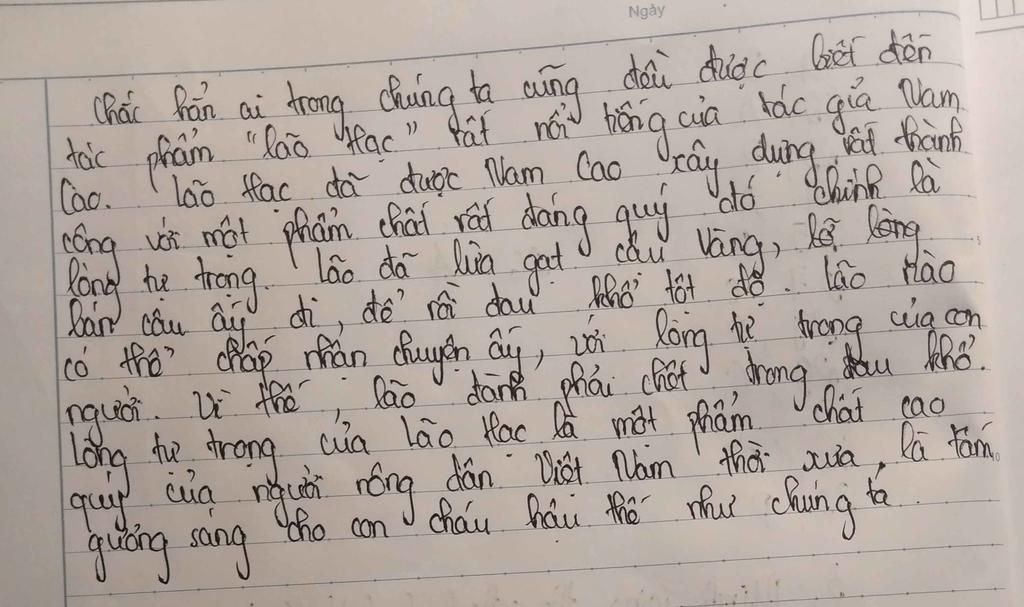 Ngày
Chắc hẳn ai trong chúng ta cũng đều được biết đến
tác phẩm "Lão Hạc" rất nổi tiếng của tác giả Nam
Cao. Lão Hạc đã được Nam Cao xây dựng rất thành
công với một phẩm chất rất đáng quý đó chính là
lòng tự trọng. Lão đã lừa gạt cậu Vàng, lỡ lòng
bán cậu ấy đi, để rồi đau khổ tột độ. Lão nào
có thể chấp nhận chuyện ấy, với lòng tự trọng của con
người. Vì thế, lão đành phải chết trong đau khổ.
Lòng tự trọng của Lão Hạc là một phẩm chất cao
quý của người nông dân Việt Nam thời xưa, là tấm
gưởng sáng cho con cháu hậu thế như chúng ta.